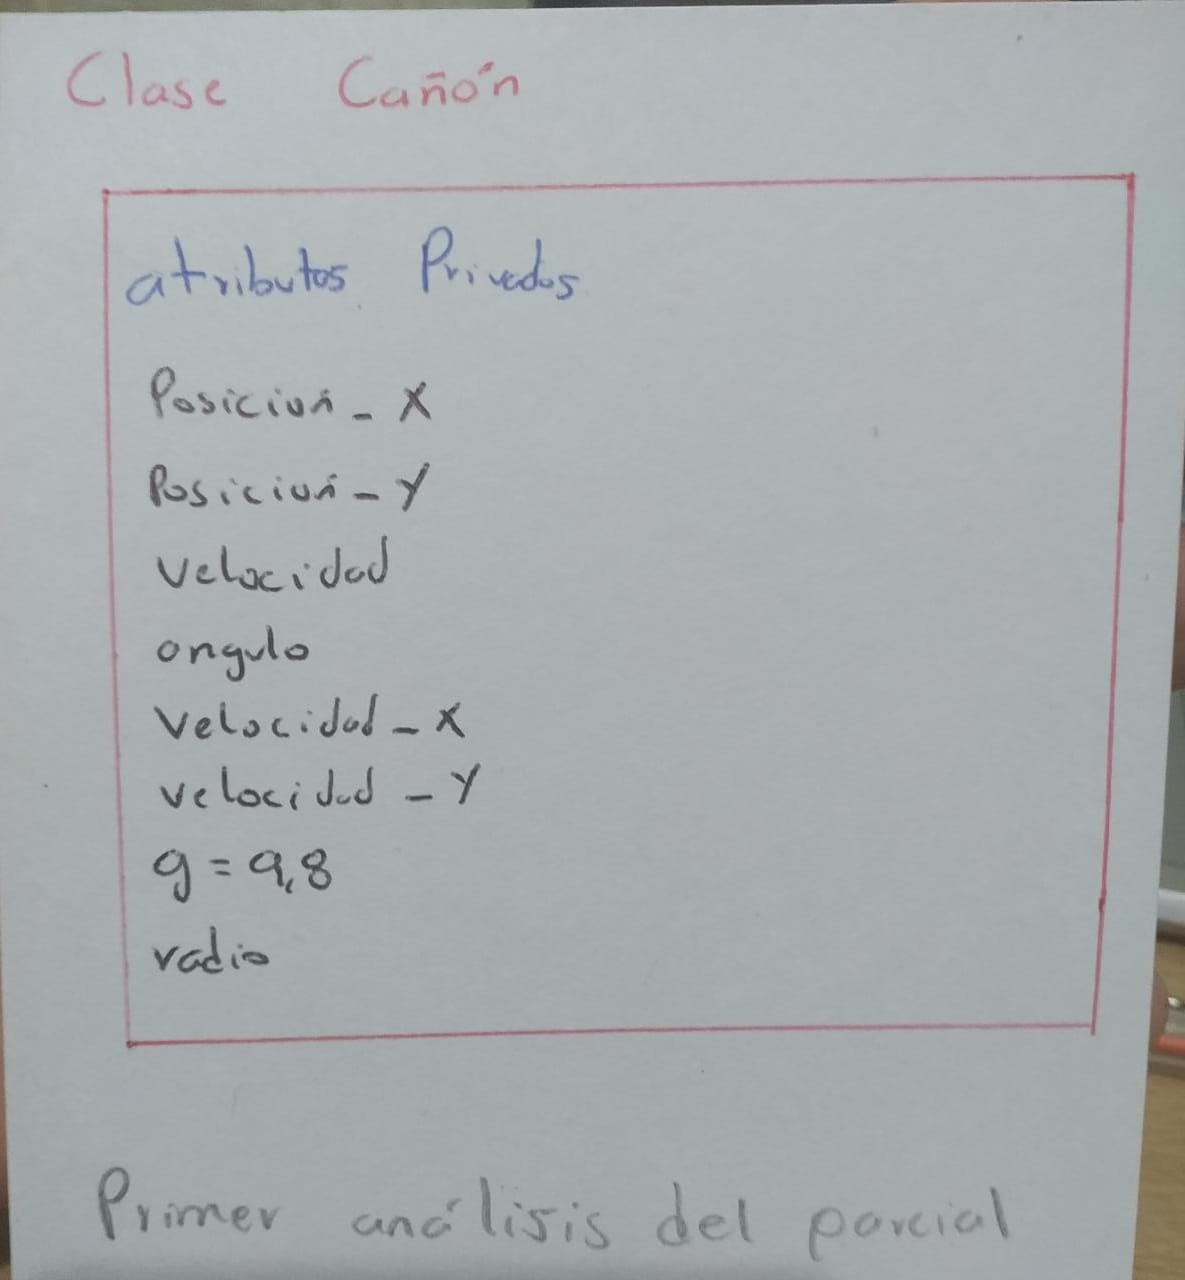 Clase Cañón
atributos Privados
Posición_X
Posición_Y
velocidad
angulo
velocidad_X
velocidad_Y
g=9,8
radio
Primer análisis del parcial